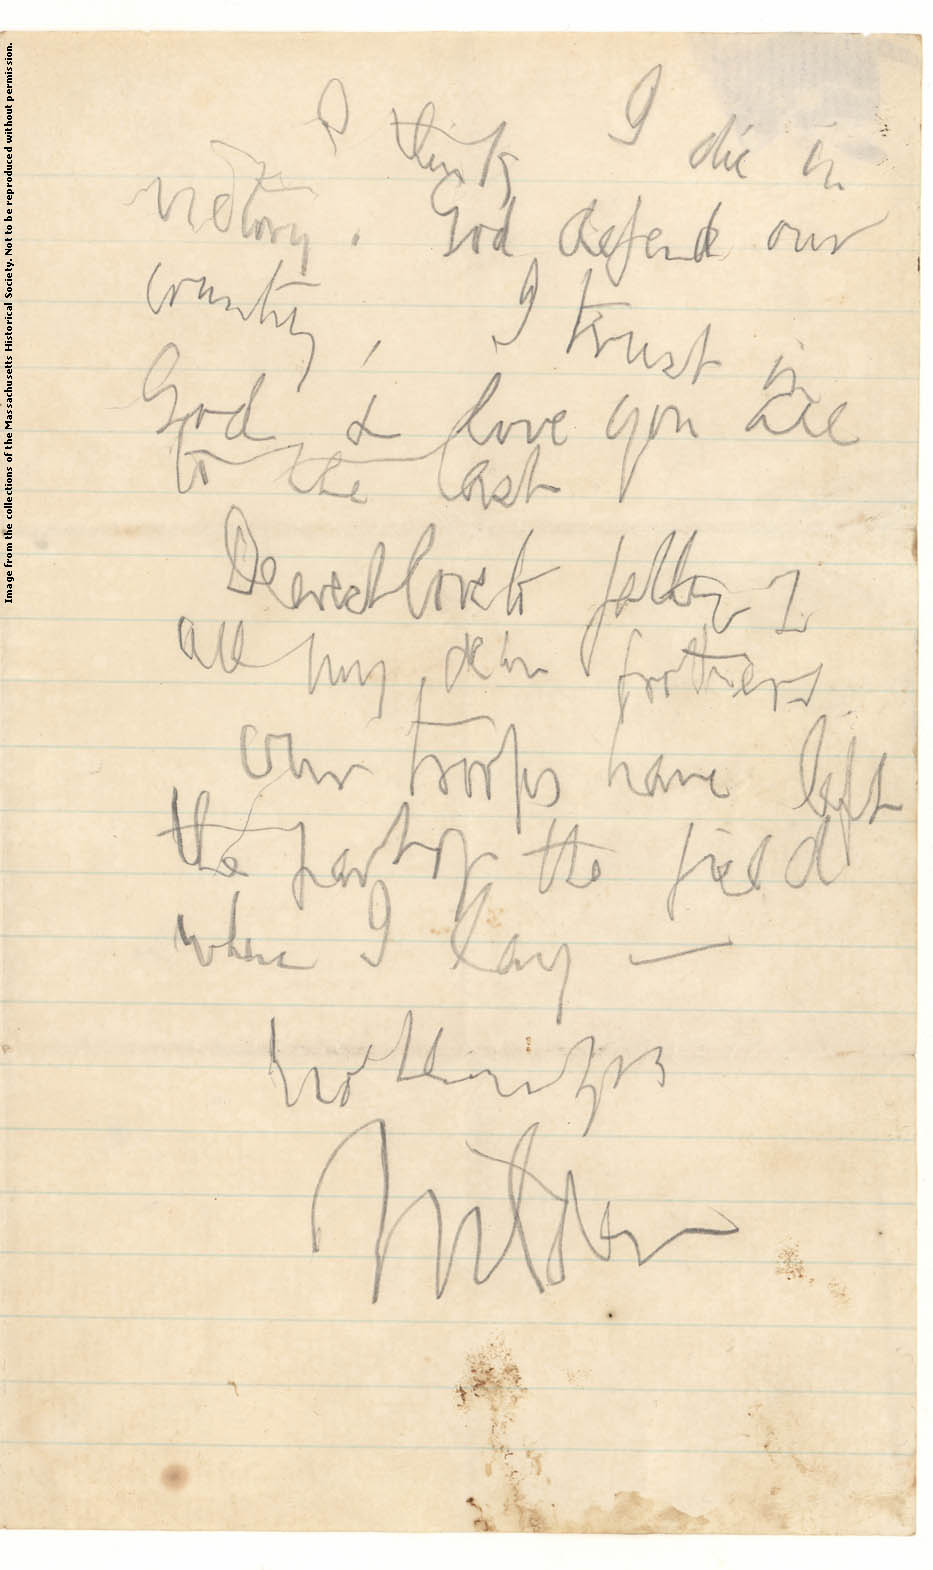 Image from the collections of the Massachusetts Historical Society. Not to be reproduced without permission.
I think I die in
victory. God defend our
country. I trust in
God, & love you all
to the last
Dearest love to father &
all my dear brothers
Our troops have left
the part of the field
where I lay —
Wilder